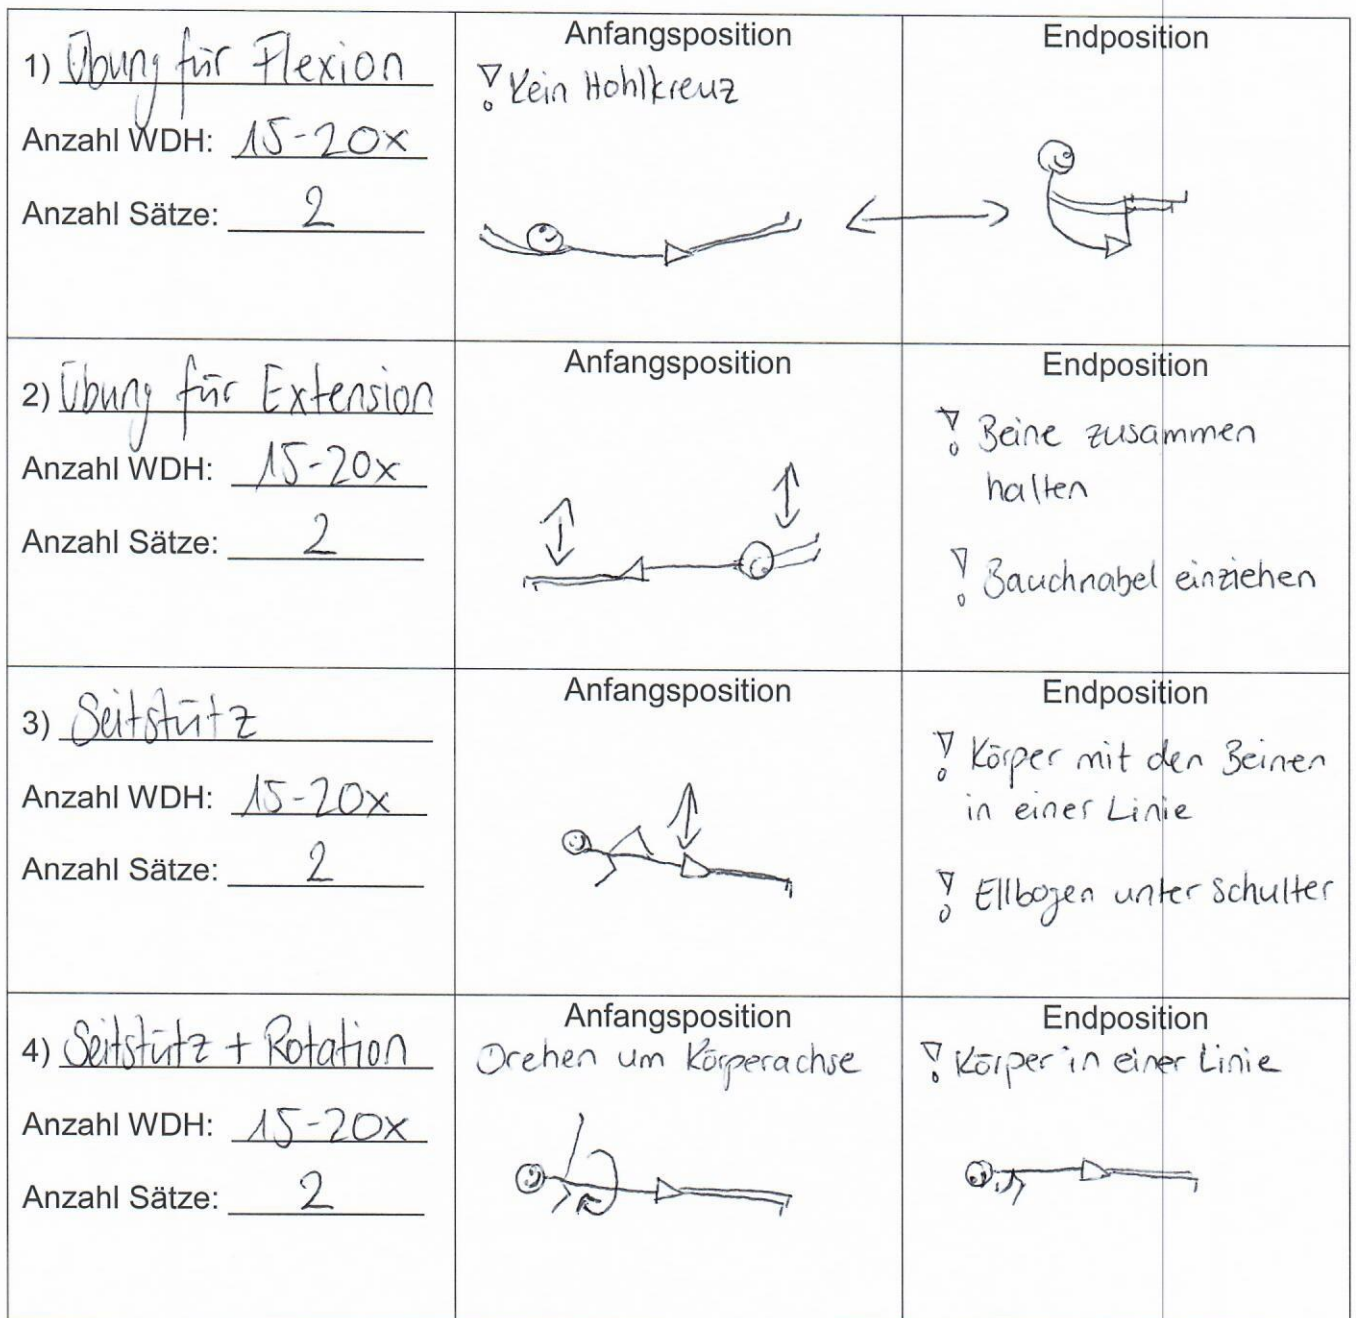 1) Übung für Flexion
Anzahl WDH: 15-20x
Anzahl Sätze: 2
Anfangsposition
! Kein Hohlkreuz
Endposition
2) Übung für Extension
Anzahl WDH: 15-20x
Anzahl Sätze: 2
Anfangsposition
Endposition
! Beine zusammen
halten
! Bauchnabel einziehen
3) Seitstütz
Anzahl WDH: 15-20x
Anzahl Sätze: 2
Anfangsposition
Endposition
! Körper mit den Beinen
in einer Linie
! Ellbogen unter Schulter
4) Seitstütz + Rotation
Anzahl WDH: 15-20x
Anzahl Sätze: 2
Anfangsposition
Drehen um Körperachse
Endposition
! Körper in einer Linie